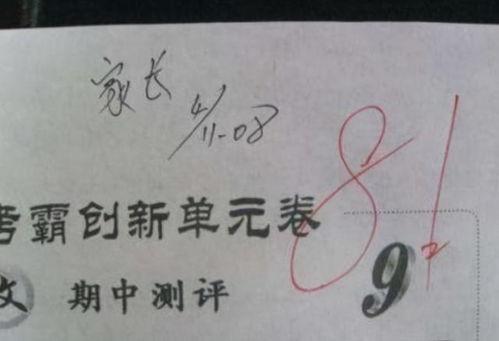 家长
11-08
81
考霸创新单元卷
期中测评
9